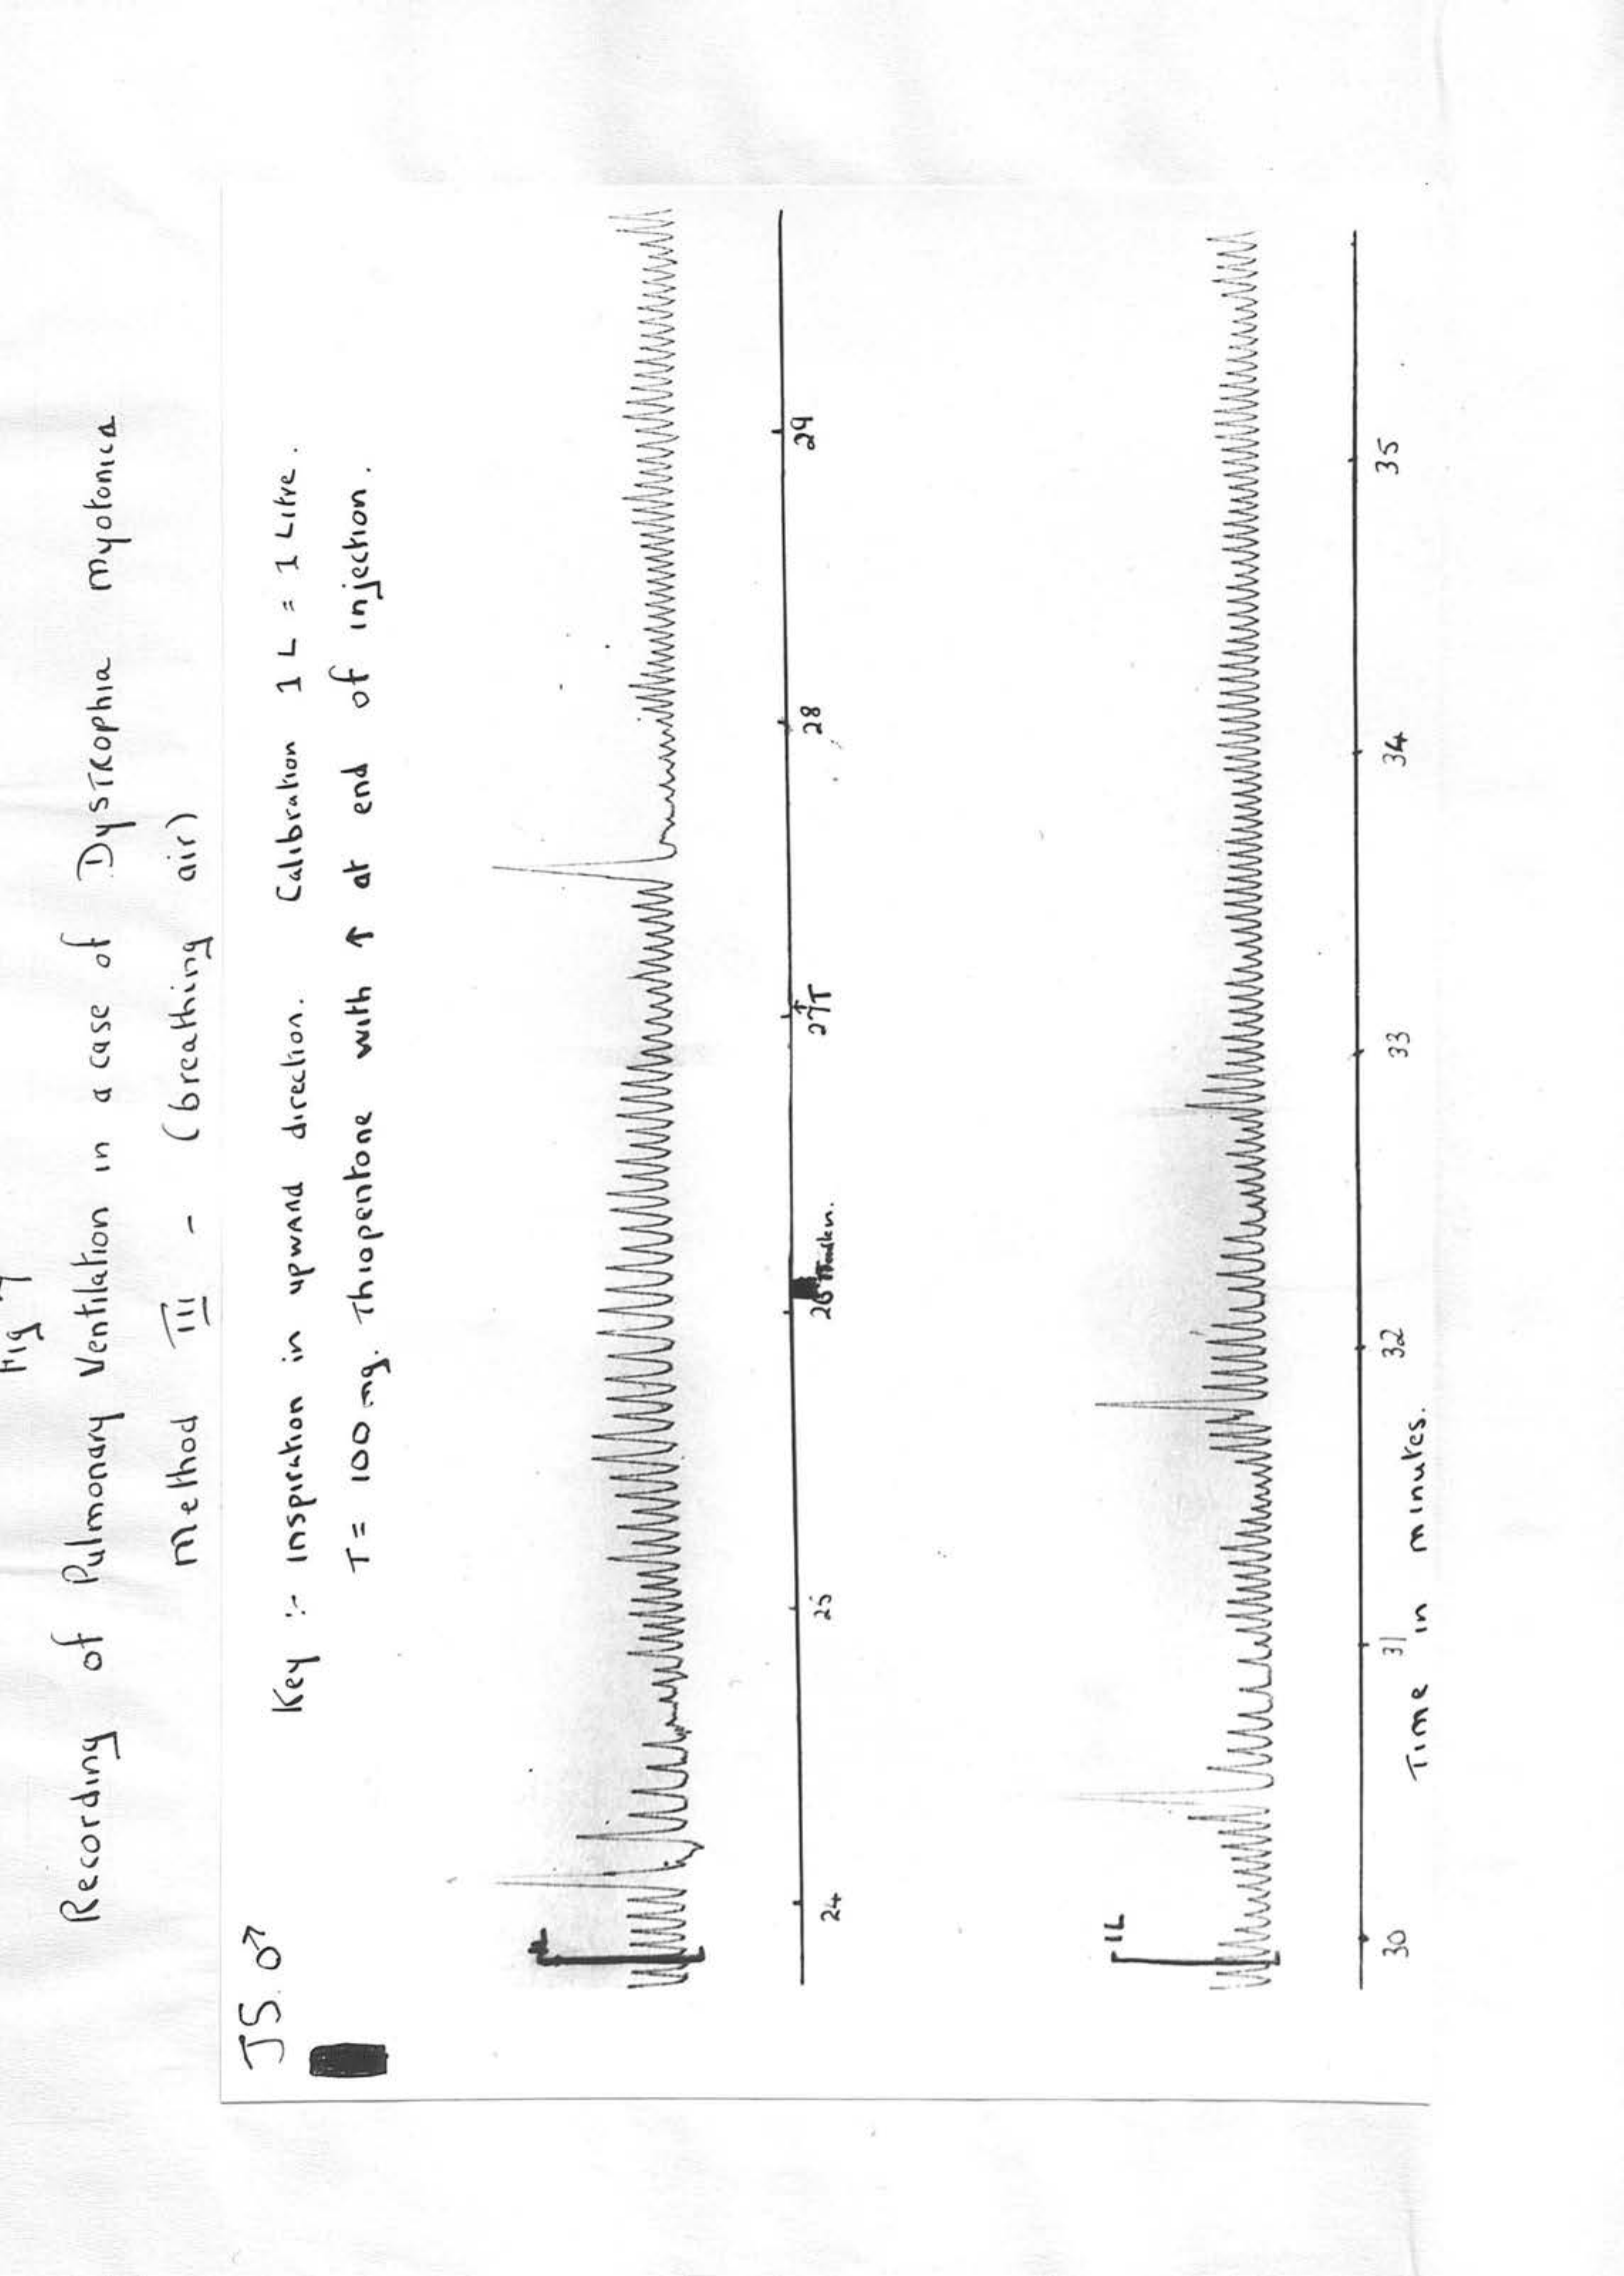 Fig 7
Recording of Pulmonary Ventilation in a case of Dystrophia myotonica
Method III - (breathing air)
JS. ♂
Key :- Inspiration in upward direction. Calibration 1 L = 1 Litre.
T = 100 mg. Thiopentone with ↑ at end of injection.
24 25 26 27 ↑T 28 29
1L
30 31 32 33 34 35
Time in minutes.